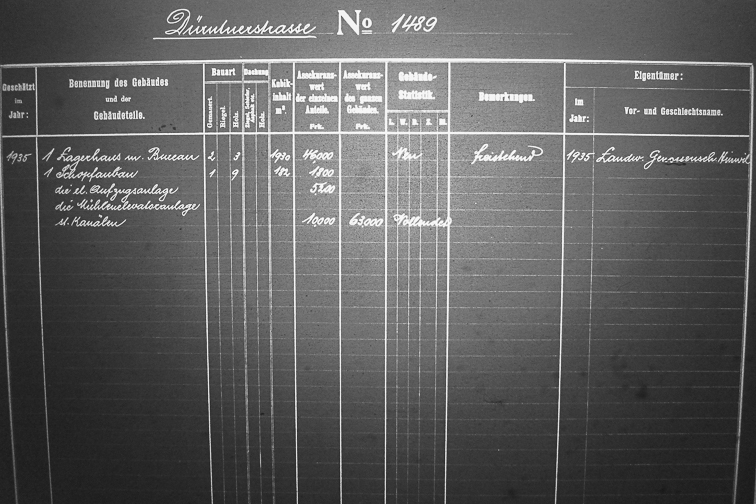 Dürntnerstrasse No 1489
Geschätzt im Jahr:
Benennung des Gebäudes und der Gebäudeteile.
Bauart
Gemauert. Riegel. Holz.
Dachung
Holz.
Kubikinhalt m³.
Assekuranzwert der einzelnen Anteile. Frk.
Assekuranzwert des ganzen Gebäudes. Frk.
Gebäude-Statistik.
Bemerkungen.
Eigentümer:
im Jahr:
Vor- und Geschlechtsname.
1935 1 Lagerhaus m. Bureau 2 3 1930 46000 Neu freistehend 1935 Landw. Genossensch. Hinwil
1 Schopfanbau 1 9 182 1800
die el. Aufzugsanlage 5200
die Mühlenelevatoranlage
st. Kanälen 10000 63,000 Vollendet